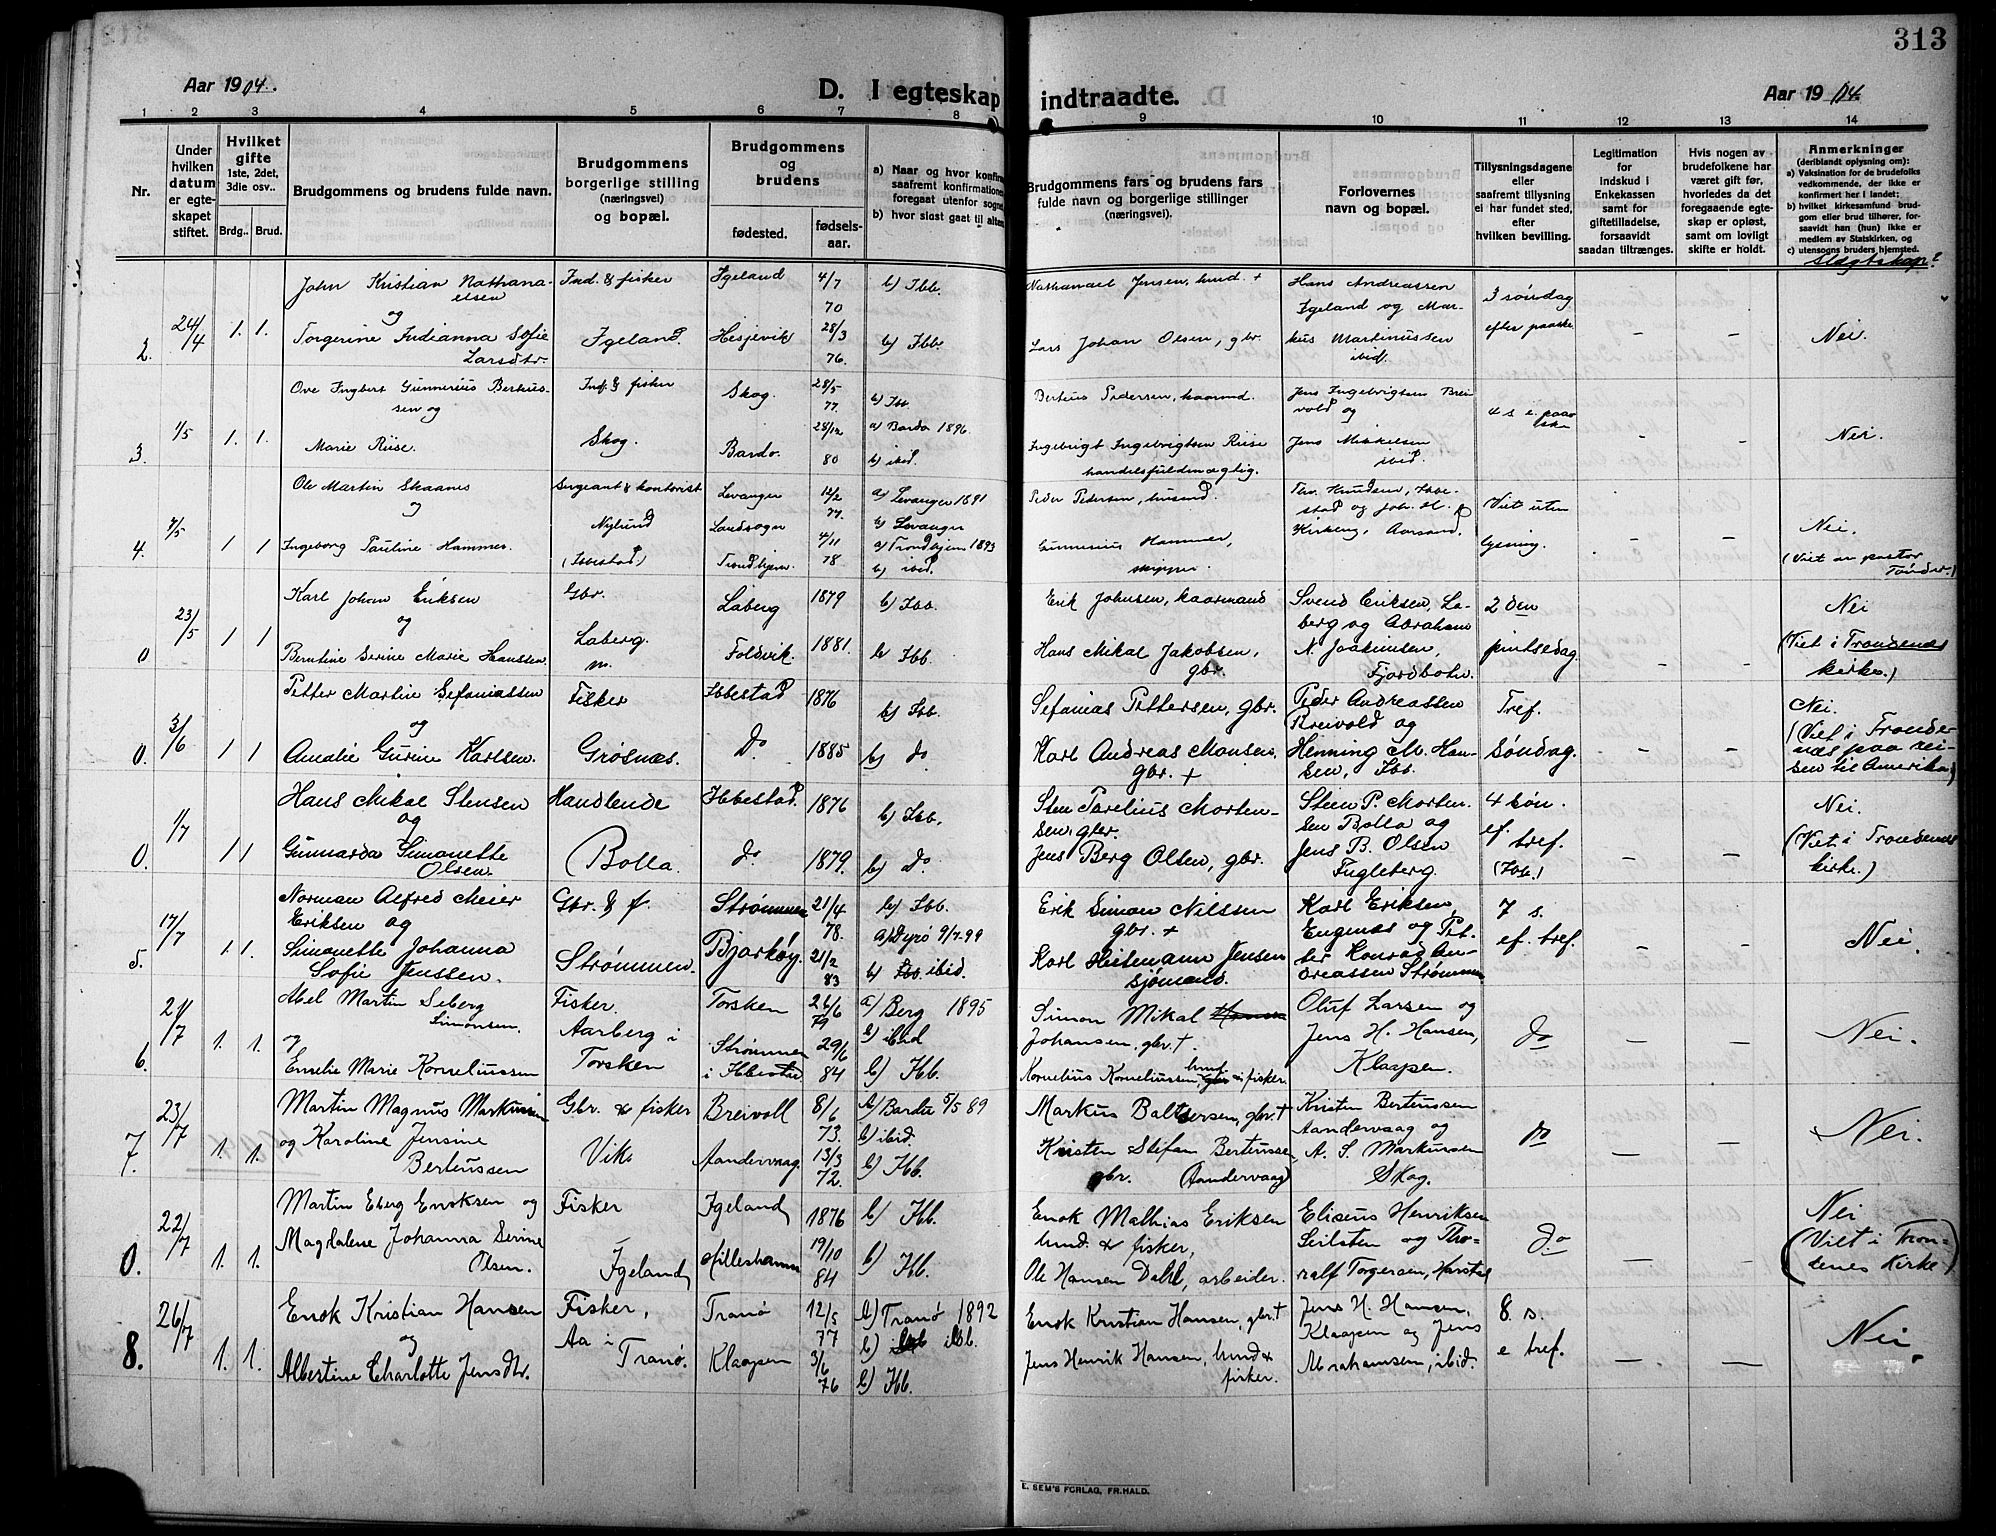 313
Aar 1904.
D. I egteskap indtraadte.
Aar 1904.
1 2 3 4 5 6 7 8 9 10 11 12 13 14
Nr.
Under hvilken datum er egteskapet stiftet.
Hvilket gifte 1ste, 2det, 3die osv..
Brdg.. Brud.
Brudgommens og brudens fulde navn.
Brudgommens borgerlige stilling (næringsvei) og bopæl.
Brudgommens og brudens
fødested.
fødsels-aar.
a) Naar og hvor konfirm
saafremt konfirmationen
foregaat utenfor sogne
b) hvor sidst gaat til alters
Brudgommens fars og brudens fars fulde navn og borgerlige stillinger (næringsvei).
Forlovernes navn og bopæl.
Tillysningsdagene eller saafremt tillysning ei har fundet sted, efter hvilken bevilling.
Legitimation for Indskud i Enkekassen samt for giftetilladelse, forsaavidt saadan tiltrænges.
Hvis nogen av brudefolkene har været gift før, hvorledes da det foregaaende egteskap er opløst, samt om lovligt skifte er holdt.
Anmerkninger (deriblandt oplysning om):
a) Vaksination for de brudefolks vedkommende, der ikke er konfirmert her i landet;
b) hvilket kirkesamfund brudgom eller brud tilhører, forsaavidt han (hun) ikke er medlem av Statskirken, og
c) utensogns bruders hjemsted.
Slægtskap?
2. 24/4 1. 1.
John Kristian Nathanaelsen
og
Torgerine Indianna Sofie
Larsdtr.
Ind. & fisker
Igeland.
Igeland 4/7 70 b) Ibb.
Hesjevik 28/3 76. b) Ibb.
Nathanael Jensen, hund. +
Lars Johan Olsen, gbr.
Hans Andreassen
Igeland og Markus Martinussen
ibid.
3 søndag
efter paaske
– – Nei.
3. 1/5 1. 1.
Ove Ingbert Gunnerius Bertheussen og
Marie Riise.
Ind. & fisker
Skog.
Skog. 28/5 77. b) Ibb.
Bardo. 28/12 80 a) Bardo 1896. b) ibid.
Berteus Pedersen, kaarmd.
Ingebrigt Ingebrigtsen Riise
handelsfuldmægtig.
Jens Ingebrigtsen Breivold og
Jens Mikkelsen
ibid.
4 s. e. paaske
– – Nei.
4. 7/5 1 1
Ole Martin Skaanes
og
Ingeborg Pauline Hammer.
Sergeant & kontorist
Nylund
(Ibbestad)
Levanger Landsogn 12/2 77. a) Levanger 1891 b) Levanger
Trondhjem. 4/11 78. a) Trondhjem 1893 b) ibid.
Peder Pedersen, husmd.
Gunnerius Hammer,
skipper.
Thv. Knudsen, Ibbestad og Joh. H.
Kirkeng, Aarsand.
Viet uten
lysning.
– – Nei.
(Viet av pastor
Tønder.)
0 23/5 1 1
Karl Johan Eriksen
og
Berntine Serine Marie Hanssen.
Gbr.
Laberg.
m.
Laberg 1879 b) Ibb.
Foldvik. 1881. b) Ibb.
Erik Johnsen, kaarmand
Hans Mikal Jakobsen,
gbr.
Svend Eriksen, Laberg og Abraham
N. Joakimsen,
Fjordbotn.
2 den
pintsedag.
– – Nei
(Viet i Trondenæs
kirke.)
0. 3/6 1 1
Petter Martin Sefaniassen
og
Amalie Gurine Karlsen.
Fisker
Grøsnæs.
Ibbestad 1876 b) Ibb.
Do 1885 b) do
Sefanias Pettersen, gbr.
Karl Andreas Monsen,
gbr. +
Peder Andreassen
Breivold og
Henning M. Hansen, Ibb.
Tref.
Søndag.
– – Nei.
(Viet i Trondenæs paa reisen til Amerika)
0. 1/7 1 1
Hans Mikal Stensen
og
Gunnarda Simonette
Olsen.
Handlende
Bolla.
Ibbestad. 1876 b) Ibb.
do 1879. b) do.
Sten Parelius Mortensen, gbr.
Jens Berg Olsen, gbr.
Steen P. Mortensen Bolla og
Jens B. Olsen
Fugleberg.
4 søn.
ef. tref.
(Ibb.)
– – Nei.
(Viet i Trondenæs
kirke.)
5. 17/7 1. 1.
Norman Alfred Meier
Eriksen og
Simonette Johanna
Sofie Jenssen.
Gbr. & f.
Strømmen.
Strømmen 21/4 78. b) Ibb.
Bjarkøy. 21/2 83 a) Dyrø 9/7.99 b) ibid.
Erik Simon Nilssen
gbr. +
Karl Heitmann Jensen
sjømand.
Karl Eriksen,
Engenæs og Petter Konrad Andreassen Strømmen
7 s.
ef. tref.
– – Nei.
6. 21/7 1. 1.
Abel Martin Seberg
Simonsen.
og
Emelie Marie Korneliussen
Fisker.
Aarberg i
Torsken
Torsken 26/6 79 a) Berg 1895 b) ibid
Strømmen i Ibbestad 29/6 84 b) Ibb.
Simon Mikal
Johansen, gbr. †.
Kornelius Korneliussen, hund. & fisker.
Oluf Larsen og
Jens H. Hansen,
Klaapen.
do
– – Nei.
7. 23/7 1. 1.
Martin Magnus Markussen
og Karoline Jensine
Berteussen
Gbr. & fisker
Vik.
Breivoll 8/6 73. a) Bardu 5/5 89 b) ibid
Aandervaag. 13/3 72. b) Ibb.
Markus Baltsersen, gbr. †
Kristen Stefan Berteussen,
gbr. Aandervaag)
Kristen Berteussen
Aandervaag og
A. S. Markussen
Skog.
do
– – Nei.
0. 22/7 1. 1.
Martin Eberg Enoksen og
Magdalene Johanna Serine
Olsen.
Fisker
Igeland
Igeland 1876 b) Ibb.
Hilleshamn 19/10 84 b) Ibb.
Enok Mathias Eriksen
hund. & fisker,
Ole Hansen Dahl, arbeider.
Eliseus Henriksen
Seilsten og Thoralf Torgersen, Harstad
do.
– – Nei
(Viet i Trondenes Kirke)
8. 26/7 1. 1.
Enok Kristian Hansen
og
Albertine Charlotte Jensdtr.
Fisker,
Aa i
Tranø.
Tranø 12/5 77 b) Tranø 1892 b) ibb.
Klaapen 3/6 76 b) Ibb.
Enok Kristian Hansen, gbr. †
Jens Henrik Hansen, hund &
fisker.
Jens H. Hansen,
Klaapen og Jens
Abrahamsen, ibid.
8. s.
e tref.
– – Nei.
E. SEM'S FORLAG, FR.HALD.